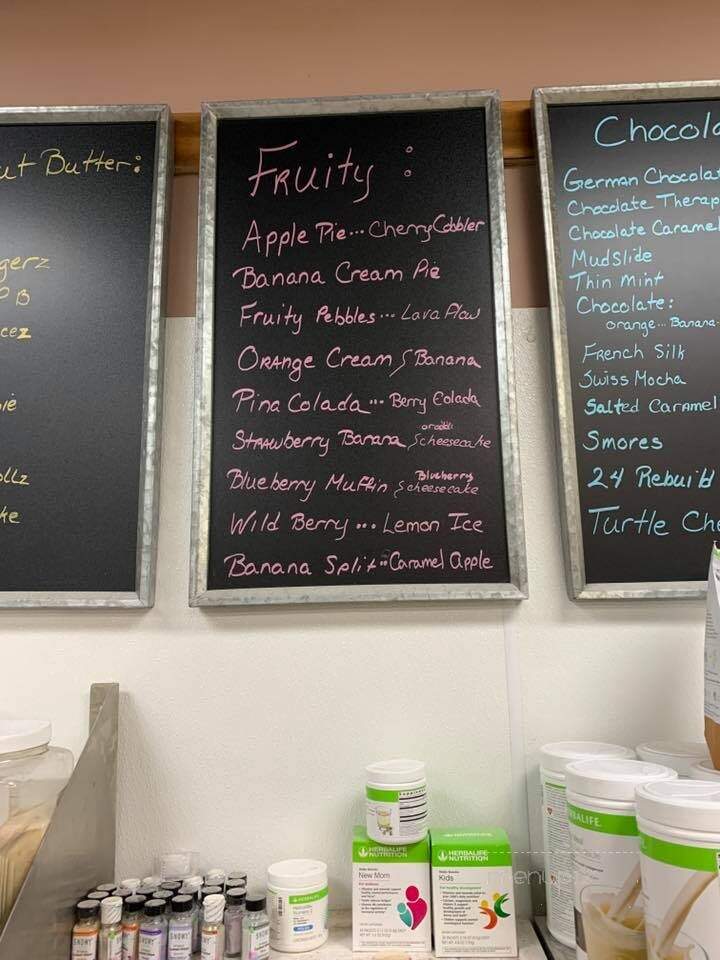 ut Butter:
gerz
PB
cez
ie
llz
ke
Fruity:
Apple Pie... Cherry Cobbler
Banana Cream Pie
Fruity Pebbles... Lava Flow
Orange Cream / Banana
Pina Colada... Berry Colada
Strawberry Banana / Scheesecake
Blueberry Muffin / Blueberry cheesecake
Wild Berry... Lemon Ice
Banana Split.. Caramel apple
Chocola
German Chocolat
Chocolate Therap
Chocolate Caramel
Mudslide
Thin mint
Chocolate:
orange... Banana
French Silk
Swiss Mocha
Salted Caramel
Smores
24 Rebuild
Turtle Che
HERBALIFE
NUTRITION
New Mom
HERBALIFE
NUTRITION
Kids
HERBALIFE
BALIFE
SNOWY
SNOWY
SNOWY